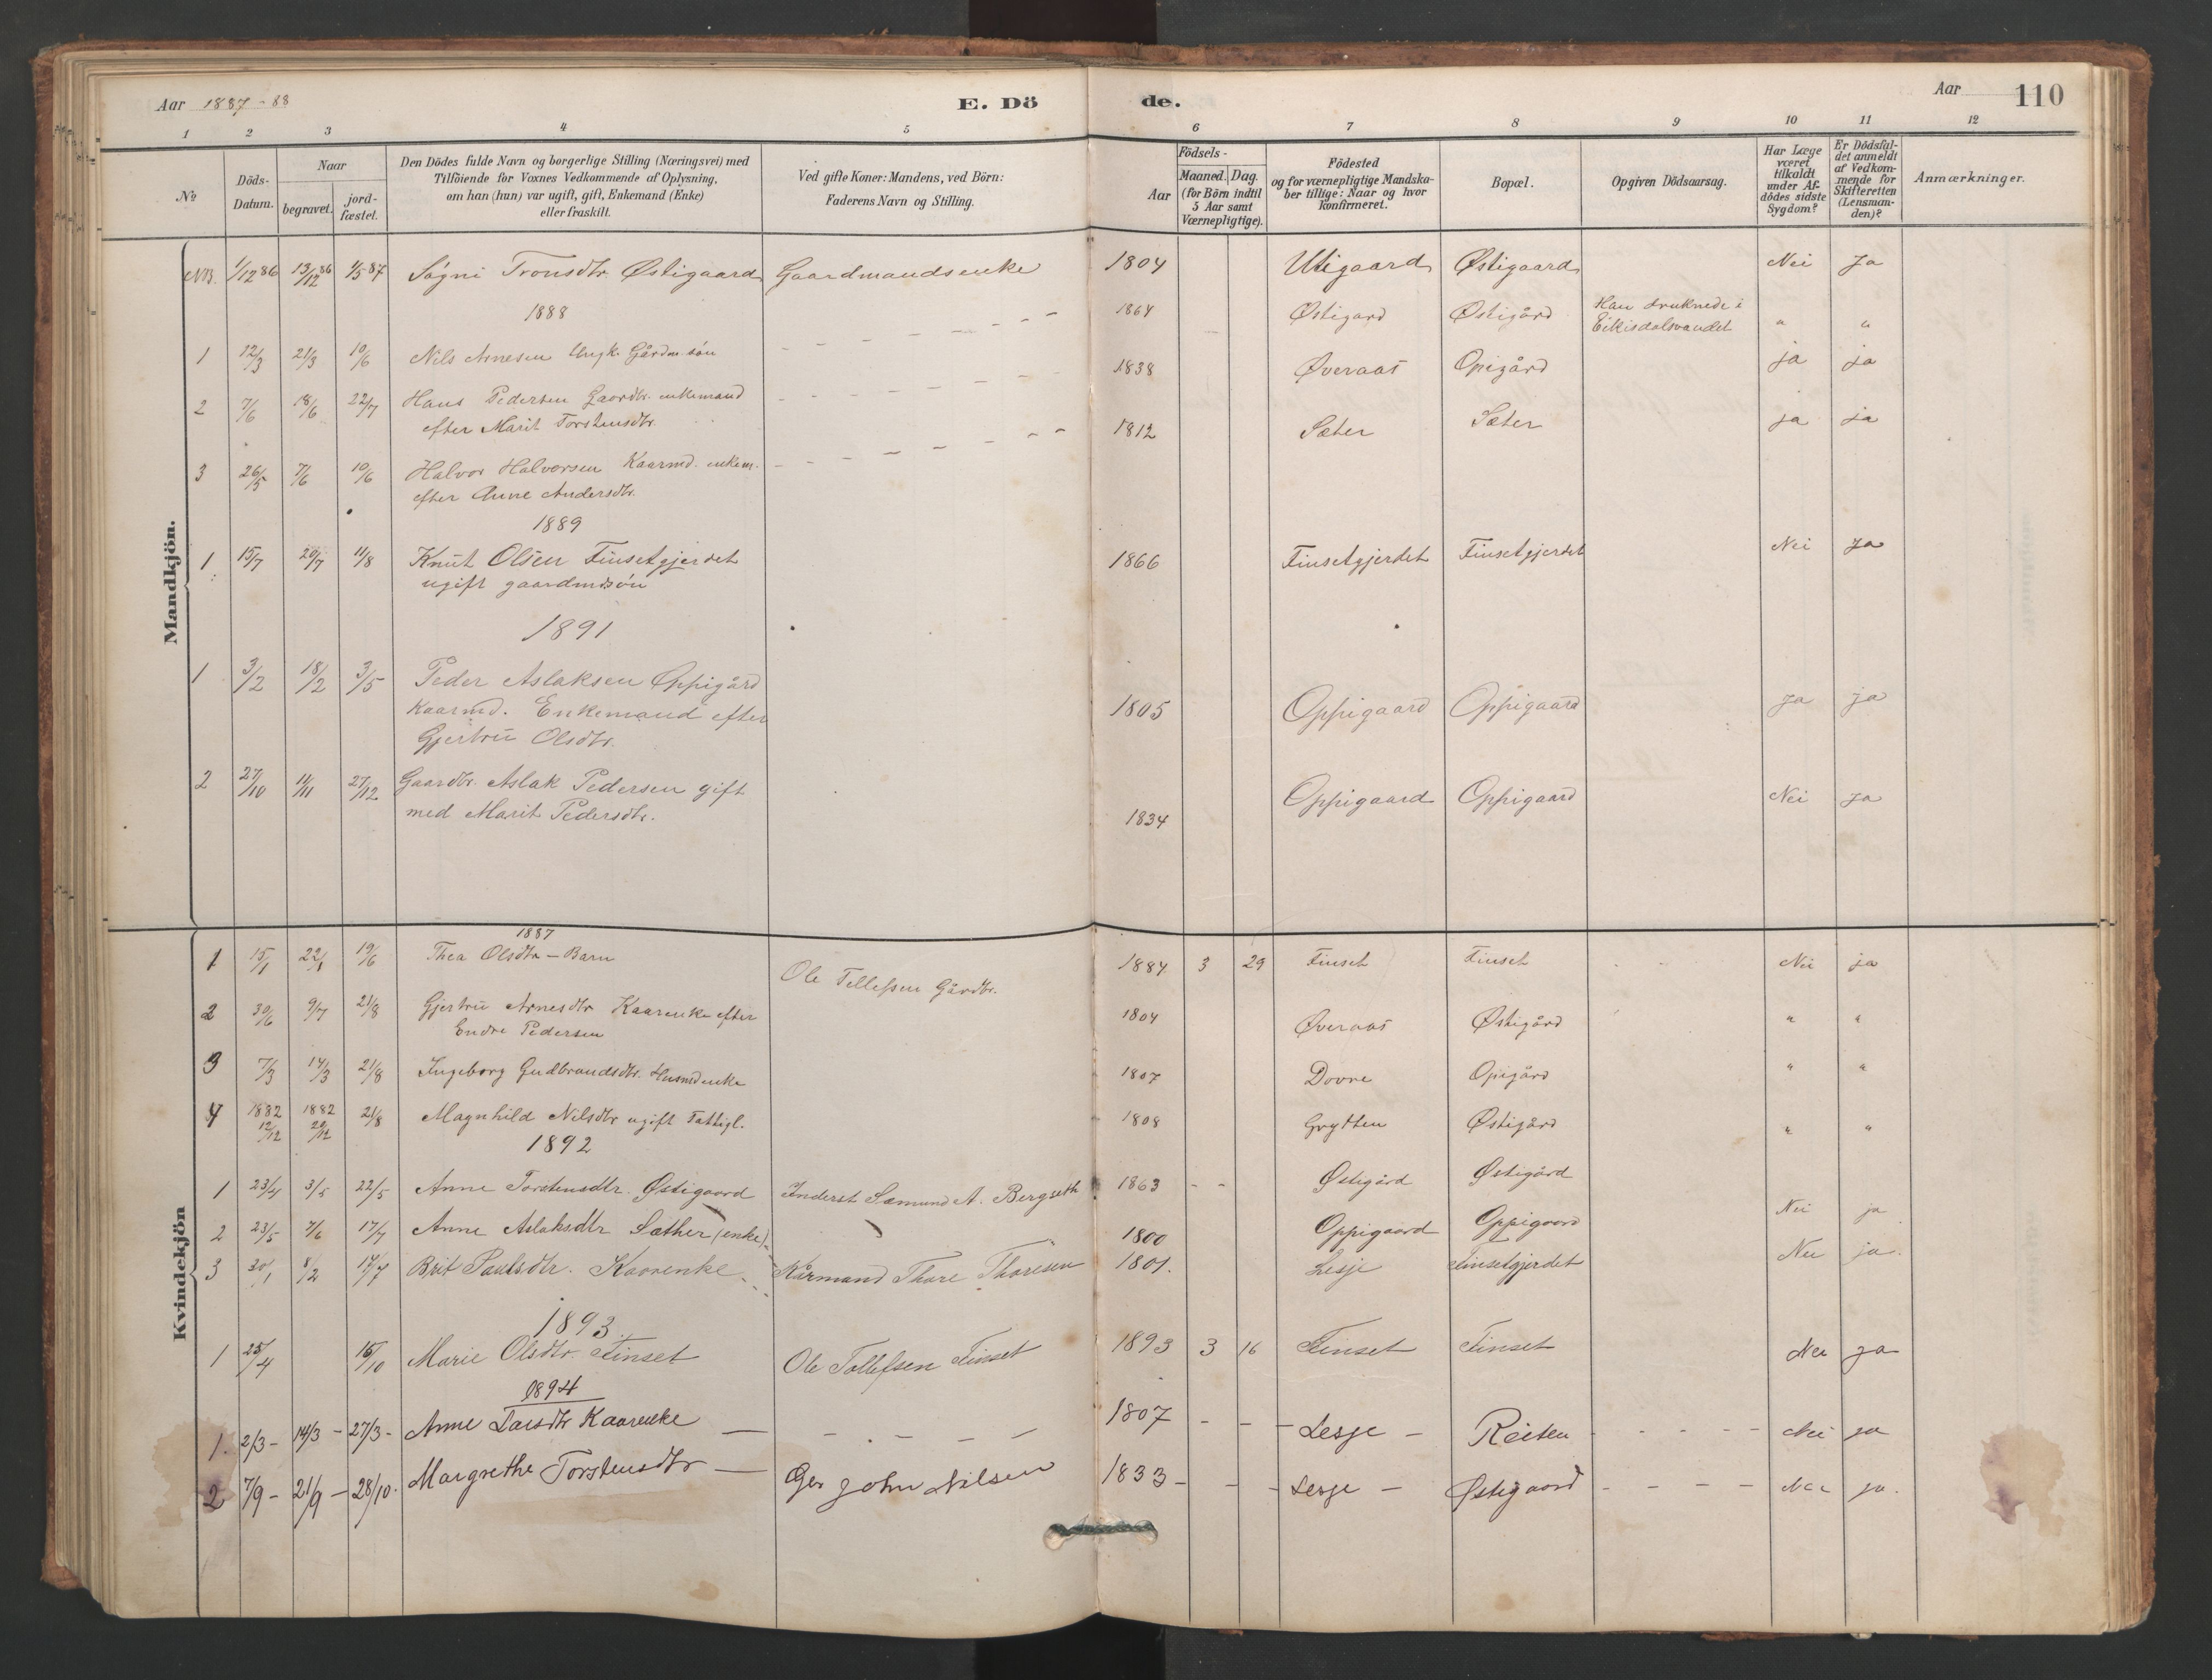 Aar 1887-88
E. Dö
de.
Aar
110
1 2 3 4 5 6 7 8 9 10 11 12
№
Döds-Datum.
Naar
begravet.
jord-fæstet.
Den Dödes fulde Navn og borgerlige Stilling (Næringsvei) med
Tilföiende for Voxnes Vedkommende af Oplysning,
om han (hun) var ugift, gift, Enkemand (Enke)
eller fraskilt.
Ved gifte Koner: Mandens, ved Börn:
Faderens Navn og Stilling.
Födsels-
Aar
Maaned. Dag.
(for Börn indtil
5 Aar samt
Værnepligtige).
Födested
og for værnepligtige Mandska-
ber tillige: Naar og hvor
konfirmeret.
Bopæl.
Opgiven Dödsaarsag.
Har Læge
været
tilkaldt
under Af-
dödes sidste
Sygdom?
Er Dödsfal-
det anmeldt
af Vedkom-
mende for
Skifteretten
(Lensman-
den)?
Anmærkninger.
Mandkjön.
NB. 1/12 86 13/12 86 1/5 87 Søgni Tronsdtr. Østigaard Gaardmandsenke 1804 Utigaard Østigaard Nei Ja
1888
1 12/3 21/3 10/6 Nils Arnesen Ungk. Gårdm. søn - - - - - - - 1864 Østigard Østigård Han druknede i
Eikisdalsvandet " "
2 7/6 18/6 22/7 Hans Pedersen Gaardbr. enkemand - - - - - - - 1838 Øveraas Opigård ja ja
efter Marit Torstensdtr.
3 26/5 7/6 10/6 Halvor Halvorsen Kaarmd. enkem. - - - - - - - 1812 Sæter Sæter ja ja
efter Anne Andersdtr.
1889
1 15/7 20/7 11/8 Knut Olsen Finsetgjerdet 1866 Finsetgjerdet Finsetgjerdet Nei Ja
ugift gaardmdsøn
1891
1 3/2 18/2 3/5 Peder Aslaksen Oppigård
Kaarmd. Enkemand efter 1805 Oppigaard Oppigaard Ja ja
Gjertru Olsdtr.
2 27/10 11/11 27/12 Gaardbr. Aslak Pedersen gift Oppigaard Oppigaard Nei Ja
med Marit Pedersdtr. 1834
Kvindekjön
1887
1 15/1 22/1 19/6 Thea Olsdtr - Barn Ole Tellefsen Gårdbr. 1884 3 29 Finset Finset - - Nei ja
2 30/6 9/7 21/8 Gjertru Arnesdtr Kaarenke efter 1804 Øveraas Østigård " "
Endre Pedersen
3 7/3 14/3 21/8 Ingeborg Gudbrandsdtr. Husmdenke 1807 Dovre Opigård " "
4 1882 12/12 1882 20/12 21/8 Magnhild Nilsdtr ugift Fattigl. 1808 Grytten Østigård " "
1892
1 23/4 3/5 22/5 Anne Torstensdtr. Østigaard Inderst Sæmund A. Bergseth 1863 - - Østigård Østigård
2 23/5 7/6 17/7 Anne Aslaksdtr Sæther (enke) 1800 Oppigaard Oppigaard Nei ja
3 30/1 8/2 17/7 Brit Paulsdtr. Kaarenke Kårmand Thore Thoresen 1801. Lesje Finsetgjerdet Nei ja.
1893
1 25/4 15/10 Marie Olsdtr. Finset Ole Tollefsen Finset 1893 3 16 Finset Finset Nei Ja
1894
1. 2/3 - 14/3 - 27/3 - Anne Larsdtr Kaarenke - - - - - - 1807 - - - Lesje - Reiten - - - - Nei ja
2 7/9 - 21/9 - 28/10. Margrethe Torstensdtr - John Nilsen 1833 - - - Lesje - Østigaard - - - - Nei ja.